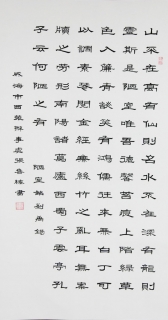 山不在高有仙則名水不在深有龍則
靈斯是陋室唯吾德馨苔痕上階綠草
色入簾青談笑有鴻儒往來無白丁可
以調素琴閱金經無絲竹之亂耳無案
牘之勞形南陽諸葛廬西蜀子雲亭孔
子云何陋之有 陋室銘劉禹錫
威海市西苑辦事處張書